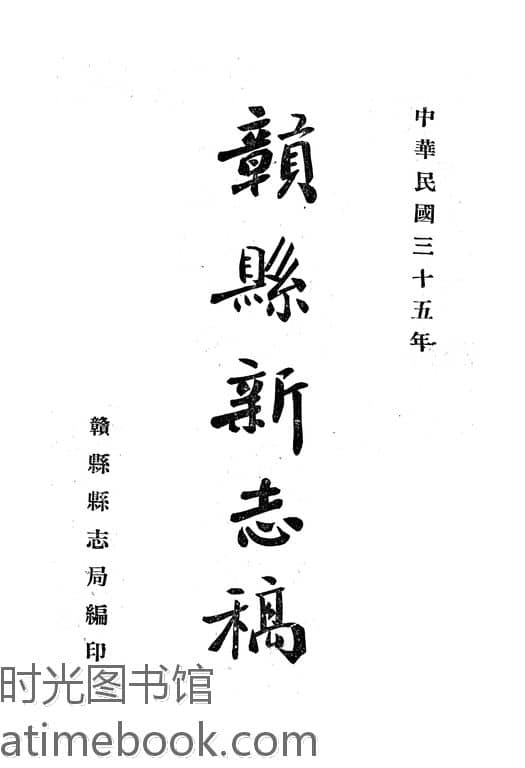 中華民國三十五年
贑縣新志稿
贛縣縣志局編印
时光图书馆
atimebook.com